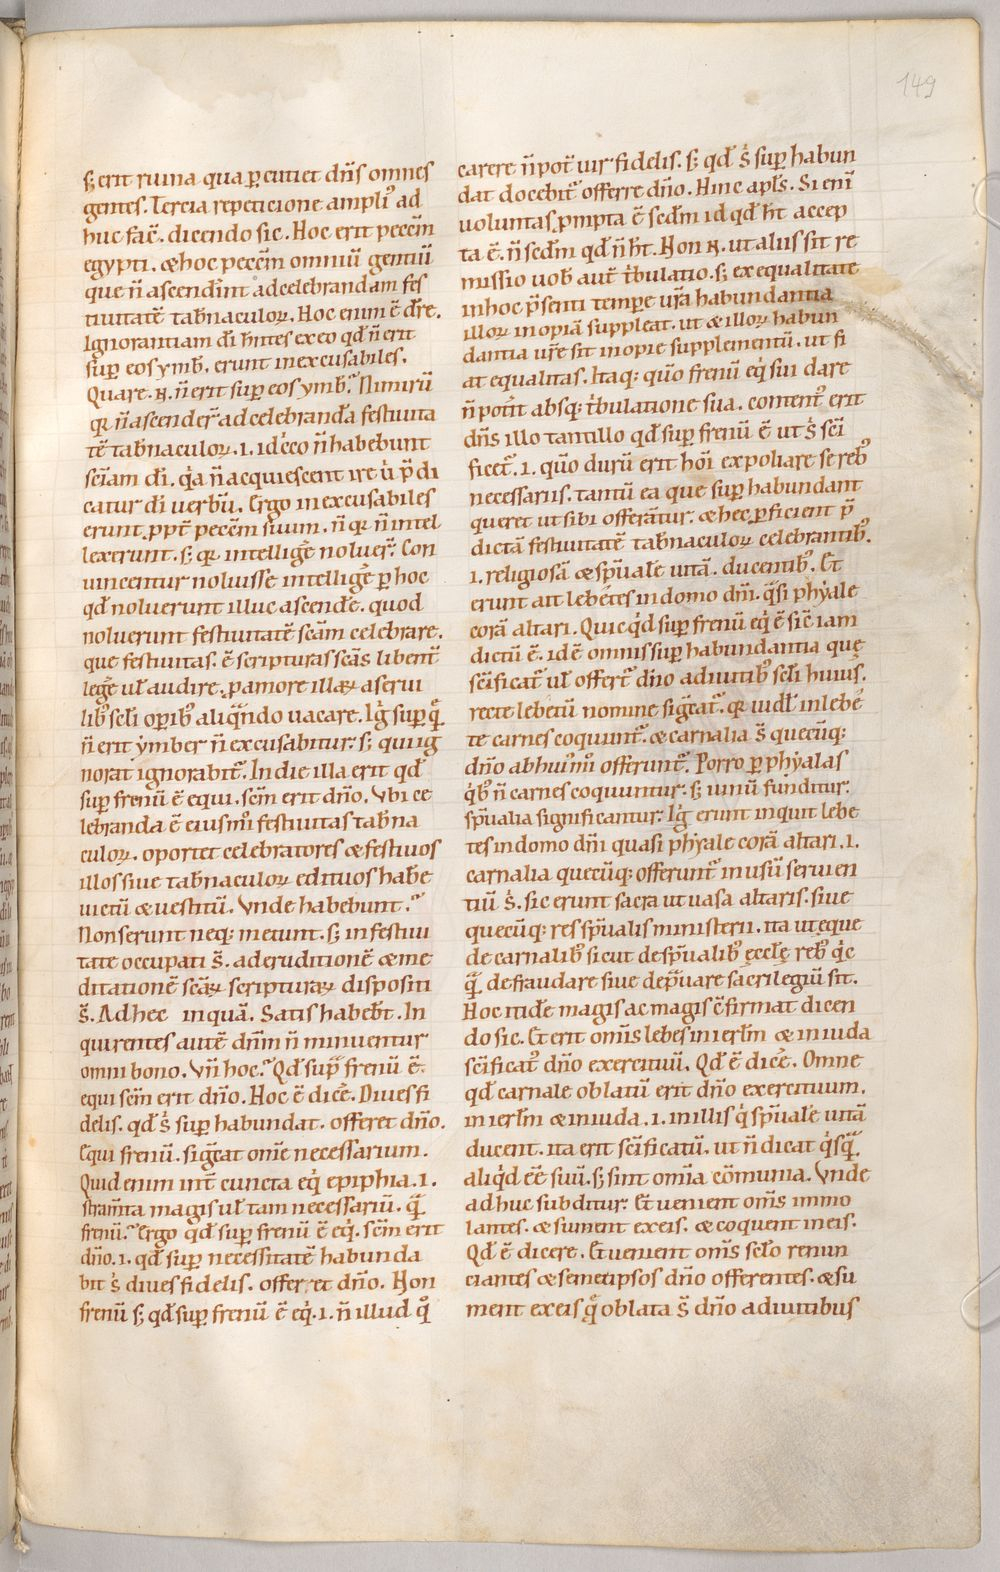 149
s; erit ruina qua ꝑcutiet dn̄s omnes
gentes. Tercia repeticione ampli᾽ ad
huc facͥ. dicendo sic. Hoc erit peccm̄
egypti. & hoc peccm̄ omniū gentiū
que n̄ ascendͬint ad celebrandam fes
tiuitatē tabͬnaculoꝝ. Hoc enim ē dͬre.
Ignorantiam dī hn̄tes ex eo qđ n̄ erit
suꝑ eos ymbͬ. erunt inexcusabiles.
Quare .ꝶ. n̄ erit suꝑ eos ymbͬ? Nimirū
qꝛ n̄ ascenderͬ ad celebrandā festiuita
tē tabͬnaculoꝝ. .i. idͨco n̄ habebunt
scīam dī. qͥa n̄ acquiescent ire uͥ p̄di
catur dī uerbū. Ergo inexcusabiles
erunt ꝓpt̄ peccm̄ suum. n̄ qꝛ n̄ intel
lexerunt. s; qꝛ intelligē noluerͬ. Con
uincentur noluisse intelligē ꝑ hoc
qđ noluerunt illuc ascendē. quod
noluerunt festiuitatē scām celebrare.
que festiuitas. ē scripturas scās libent̄
legē ul̄ audire. ꝓ amore illaꝝ a serui
lib᾽ scl̄i oꝑib᾽ aliqͣndo uacare. Igͥ suꝑ qͦ
n̄ erit ẏmber n̄ excusabitur. s; qui ig
norat ignorabit᾽. In die illa erit qđ
suꝑ frenū ē equi. scm̄ erit dn̄o. Vbi ce
lebranda ē eiusmͦi festiuitas tabͬna
culoꝝ. oportet celebratores & festiuos
illos siue tabͬnaculoꝝ edituos habē
uictū & uestitū. Vnde habebunt?
Non serunt neq; metunt. s; in festiui
tate occupati s̄. ad eruditionē & me
ditationē scāꝝ scripturaꝝ dispositi
s̄. Ad hec inquā. Satis habebt̄. In
quirentes autē dn̄m n̄ minuentur
omni bono. Vn̄ hoc? Qđ supͣ frenū ē
equi scm̄ erit dn̄o. Hoc ē dicē. Diues fi
delis. qđ sͥ suꝑ habundat. offeret dn̄o.
Equi frenū. sigͨat omē necessarium.
Quid enim int̄ cuncta eqͥ epiphia. .i.
stram̄ta magis ul̄ tam necessariū. qͣ
frenū? Ergo qđ suꝑ frenū ē eqͥ. scm̄ erit
dn̄o. .i. qđ suꝑ necessitatē habunda
bit sͥ diues fidelis. offeret dn̄o. Non
frenū s; qđ suꝑ frenū ē eqͥ. .i. n̄ illud qͦ
carere n̄ pot̄ uir fidelis. s; qđ sͥ suꝑ habun
dat docebit᾽ offerre dn̄o. Hinc apl̄s. Si enī
uoluntas ꝓmpta ē scd̄m id qđ ht̄ accep
ta ē. n̄ scd̄m qđ n̄ ht̄. Non .ꝶ. ut aliis sit re
missio uob̄ aut̄ tͥbulatio. s; ex equalitate
in hoc p̄senti temꝑe ur̄a habundantia
illoꝝ inopiā suppleat. ut & illoꝝ habun
dantia ur̄e sit inopie supplementū. ut fi
at equalitas. Itaq; quōo frenū eqͥ sui dare
n̄ potͬit absq; tͥbulatione sua. content᾽ erit
dn̄s illo tantillo qđ suꝑ frenū ē ut sͥ scī
ficet᾽. .i. quōo durū erit hoī expoliare se reb᾽
necessariis. tantū ea que suꝑ habundant
queret ut sibi offerant᾽. & hec ꝑficient p̄
dictā festiuitatē tabͬnaculoꝝ celebrantib᾽.
.i. religiosā & spūalē uitā. ducentib᾽. Et
erunt ait lebētes in domo dn̄i. qͣsi phẏale
corā altari. Quicqͥd suꝑ frenū eqͥ ē sic̄ iam
dictū ē. idē omnis suꝑ habundantia quę
scīficat᾽ ul̄ offert᾽ dn̄o a diuitib᾽ scl̄i huius.
recte lebētū nomine sigͨat᾽. qꝛ uidl̄ in lebē
te carnes coquunt᾽. & carnalia s̄ quecūq;
dn̄o ab huiͥmͦi offerunt᾽. Porro ꝑ phẏalas
qͥb᾽ n̄ carnes coquuntur. s; uinū funditur.
spūalia significantur. Igͥ erunt inquit lebe
tes in domo dn̄i quasi phẏale corā altari. .i.
carnalia quecūq; offerunt᾽ in usū seruien
tiū sͥ. sic erunt sacra ut uasa altaris. siue
quecūq; res spūalis ministerii. ita ut eque
de carnalib᾽ sicut de spūalib᾽ eccl̄ę reb᾽ qͥc
qͣ defraudare siue dep̄uare sacrilegiū sit.
Hoc itidē magis ac magis cͦfirmat dicen
do sic. Et erit om̄is lebes in ierl̄m & in iuda
scīficat᾽ dn̄o exercituū. Qđ ē dicē. Omne
qđ carnale oblatū erit dn̄o exercituum.
in ierl̄m & in iuda. .i. in illis qͥ spūalē uitā
ducent. ita erit scīficatū. ut n̄ dicat qͥsqͣ
aliqͥd ēē suū. s; sint om̄ia cōmunia. Vnde
adhuc subditur. Et uenient om̄s immo
lantes. & sument ex eis. & coquent in eis.
Qđ ē dicere. Et uenient om̄s scl̄o renun
ciantes & semetipsos dn̄o offerentes. & su
ment ex eis qͦ oblata s̄ dn̄o a diuitibus